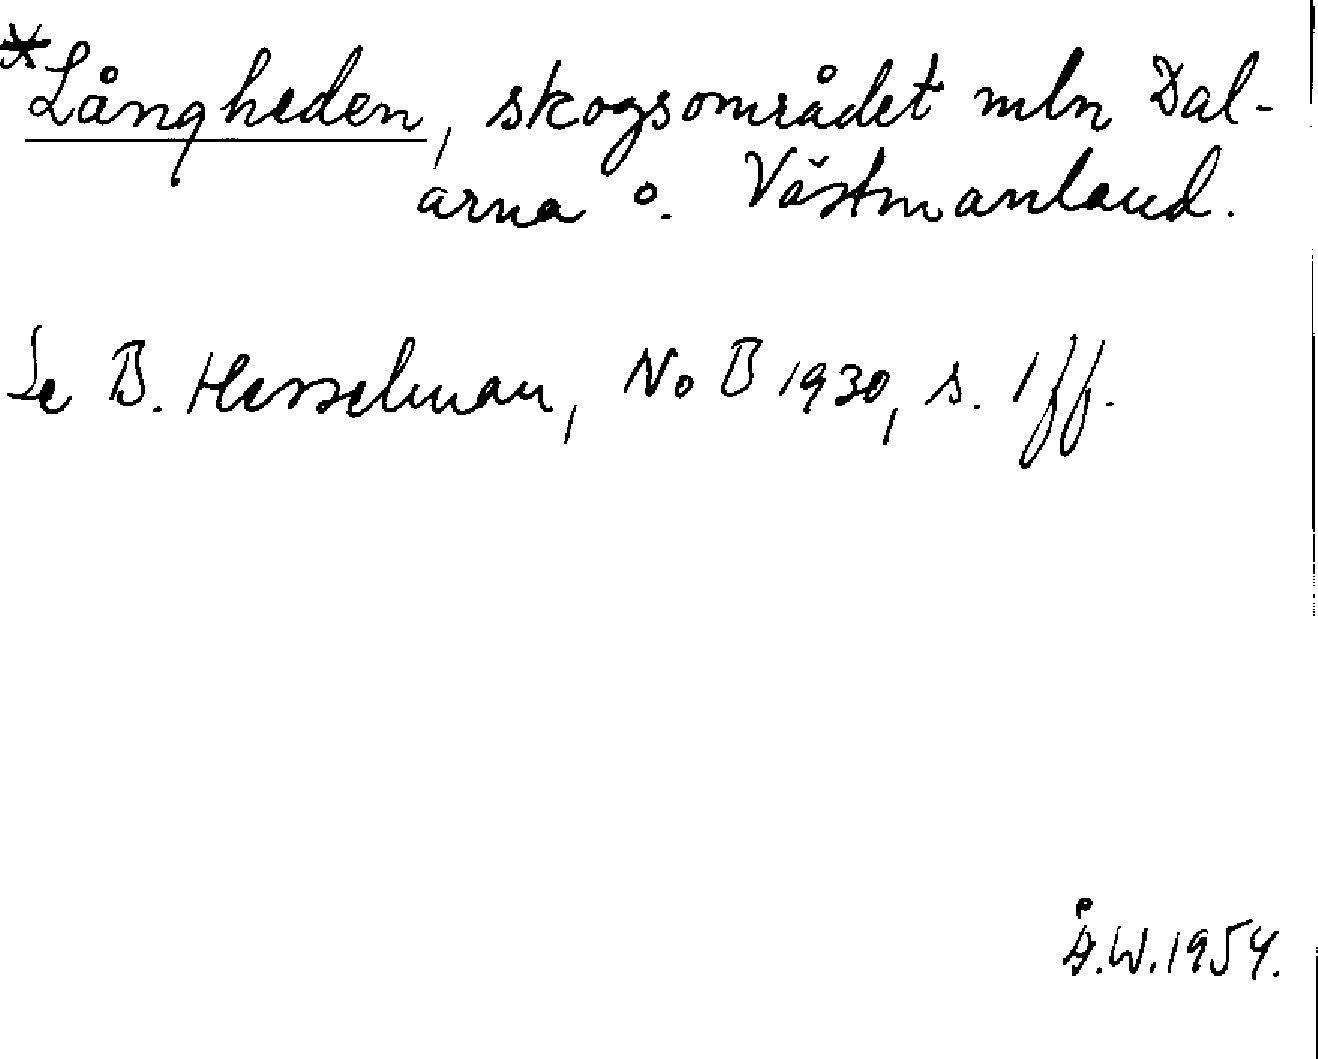 *Långheden, skogsområdet mln Dal-
arna o. Västmanland.
Se B. Hesselman, NoB 1930, s. 1 ff.
Å.W. 1954.